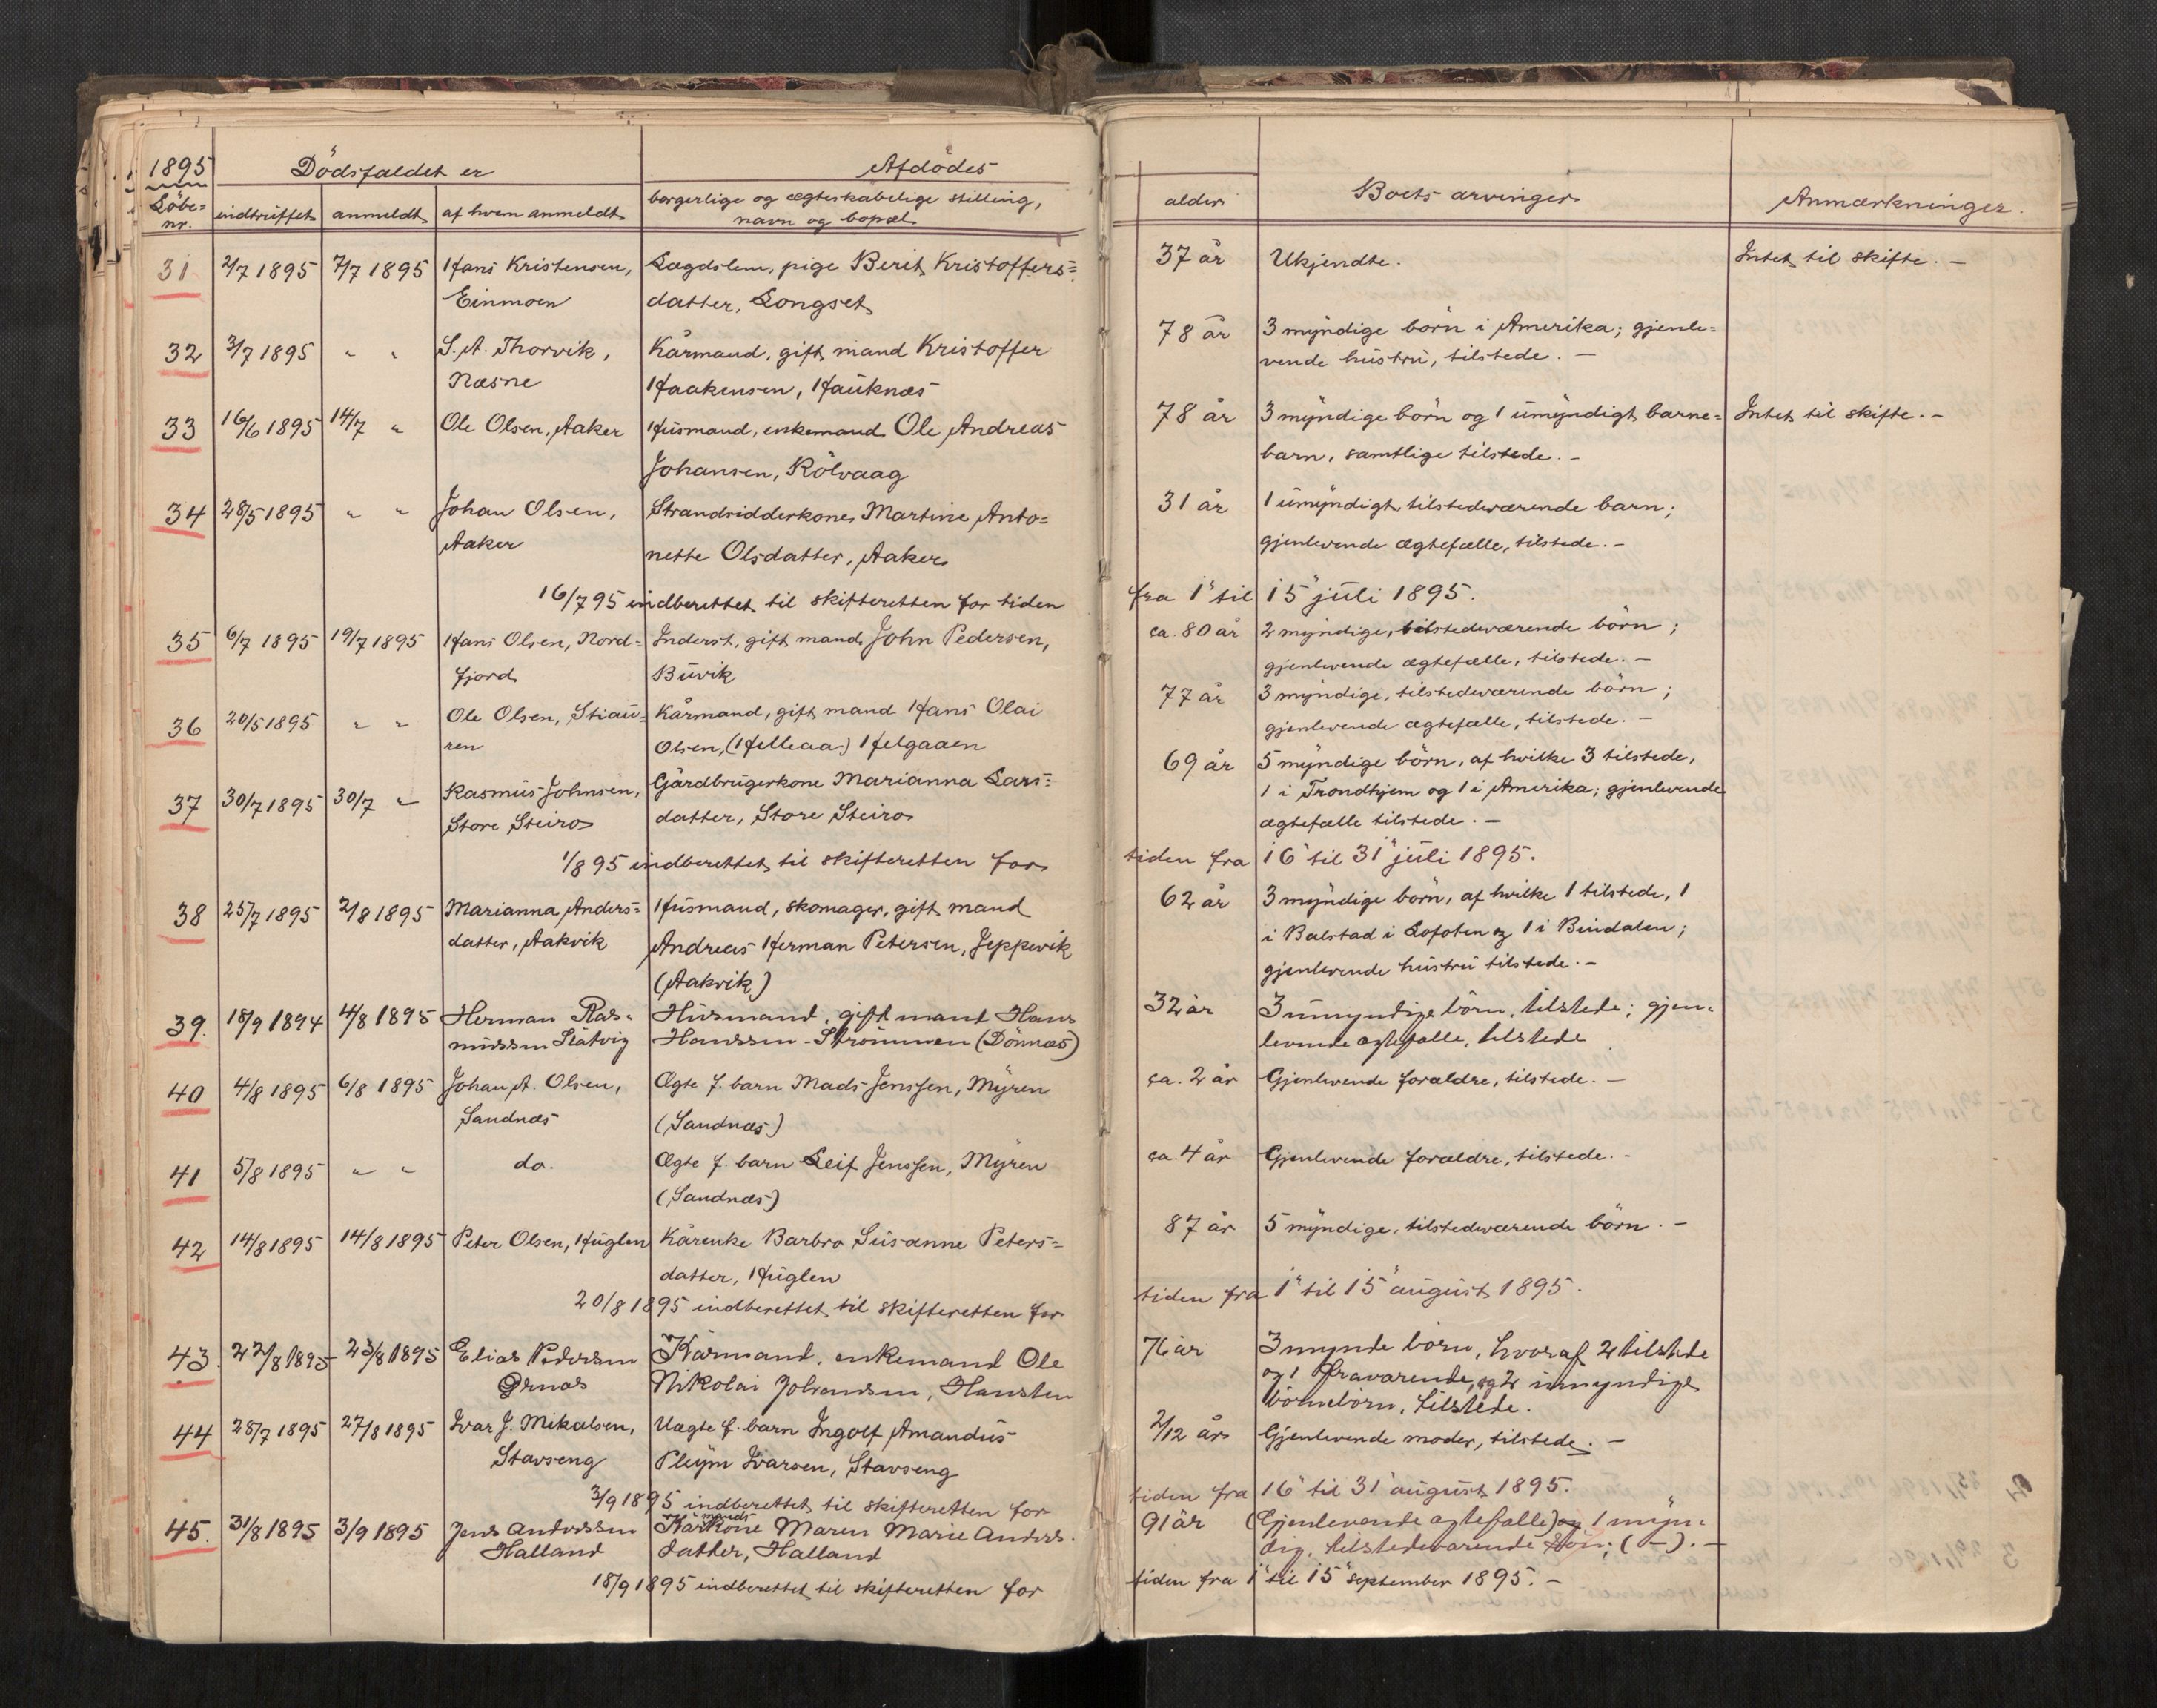 1895 Dödsfaldet er Afdödes
Löbe= nr. indtruffet anmeldt af hvem anmeldt borgerlige og ægteskabelige stilling, navn og bopæl alder Boets arvinger Anmærkninger.
31 2/7 1895 7/7 1895 Hans Kristensen, Lægdslem, pige Berit Kristoffers= 37 år Ukjendte. Intet til skifte. —
Einmoen datter, Longset
32 3/7 1895 " " S. A. Thorvik, Kårmand, gift mand Kristoffer 78 år 3 myndige börn i Amerika; gjenle=
Næsne Haakensen, Hauknæs vende hustru, tilstede. —
33 16/6 1895 14/7 " Ole Olsen, Aaker Husmand, enkemand Ole Andreas 78 år 3 myndige börn og 1 umyndigt barne= Intet til skifte. —
Johansen, Kölvaag barn, samtlige tilstede. —
34 28/5 1895 " " Johan Olsen, Strandsidderkone Martine Anto= 31 år 1 umyndigt, tilstedeværende barn;
Aaker nette Olsdatter, Aaker gjenlevende ægtefælle, tilstede. —
16/7 95 indberettet til skifteretten for tiden fra 1" til 15" juli 1895.
35 6/7 1895 19/7 1895 Hans Olsen, Nord= Inderst, gift mand John Pedersen, ca. 80 år 2 myndige, tilstedeværende börn;
fjord Buvik gjenlevende ægtefælle, tilstede. —
36 20/5 1895 " " Ole Olsen, Stiau= Kårmand, gift mand Hans Olai 77 år 3 myndige, tilstedeværende börn;
ren Olsen, (Helleaa) Helgaaen gjenlevende ægtefælle, tilstede. —
37 30/7 1895 30/7 " Rasmus Johnsen, Gårdbrugerkone Marianna Lars= 69 år 5 myndige börn, af hvilke 3 tilstede,
Store Steiro datter, Store Steiro 1 i Trondhjem og 1 i Amerika; gjenlevende
ægtefælle tilstede. —
1/8 95 indberettet til skifteretten for tiden fra 16" til 31" juli 1895.
38 25/7 1895 2/8 1895 Marianna Anders= Husmand, skomager, gift mand 62 år 3 myndige börn, af hvilke 1 tilstede, 1
datter, Aakvik Andreas Herman Petersen, Jeppevik i Balstad i Lofoten og 1 i Bindalen;
(Aakvik) gjenlevende hustru tilstede. —
39. 18/9 1894 4/8 1895 Herman Ras= Husmand, gift mand Hans 32 år 3 umyndige börn, tilstede; gjen=
mussen Slåtvig Hanssen - Strömmen (Dönnæs) levende ægtefælle, tilstede
40 4/8 1895 6/8 1895 Johan A. Olsen, Ægte f. barn Mads Jenssen, Myren ca. 2 år Gjenlevende forældre, tilstede. —
Sandnæs (Sandnæs)
41 5/8 1895 " " do. Ægte f. barn Leif Jenssen, Myren ca. 4 år Gjenlevende forældre, tilstede. —
(Sandnæs)
42 14/8 1895 14/8 1895 Peter Olsen, Huglen Kårenke Barbro Susanne Peters= 87 år 5 myndige, tilstedeværende börn. —
datter, Huglen
20/8 1895 indberettet til skifteretten for tiden fra 1" til 15" august 1895.
43. 22/8 1895 23/8 1895 Elias Pedersen Kårmand, enkemand Ole 76 år 3 mynde börn, hvoraf 2 tilstede
Ornæs Nikolai Johansen, Hansten og 1 fraværende, og 2 umyndige
börnebörn, tilstede.
44 28/7 1895 27/8 1895 Ivar J. Mikalsen, Uægte f. barn Ingolf Amandus 2/12 år Gjenlevende moder, tilstede. —
Stavseng Pleym Ivarsen, Stavseng
3/9 1895 indberettet til skifteretten for tiden fra 16" til 31" august 1895.
45. 31/8 1895 3/9 1895 Jens Anderssen Kårmandskone Maren Marie Anders= 91 år (Gjenlevende ægtefælle) og 1 myn=
Halland datter, Halland dig, tilstedeværende sön; (—). —
18/9 1895 indberettet til skifteretten for tiden fra 1" til 15" september 1895. —